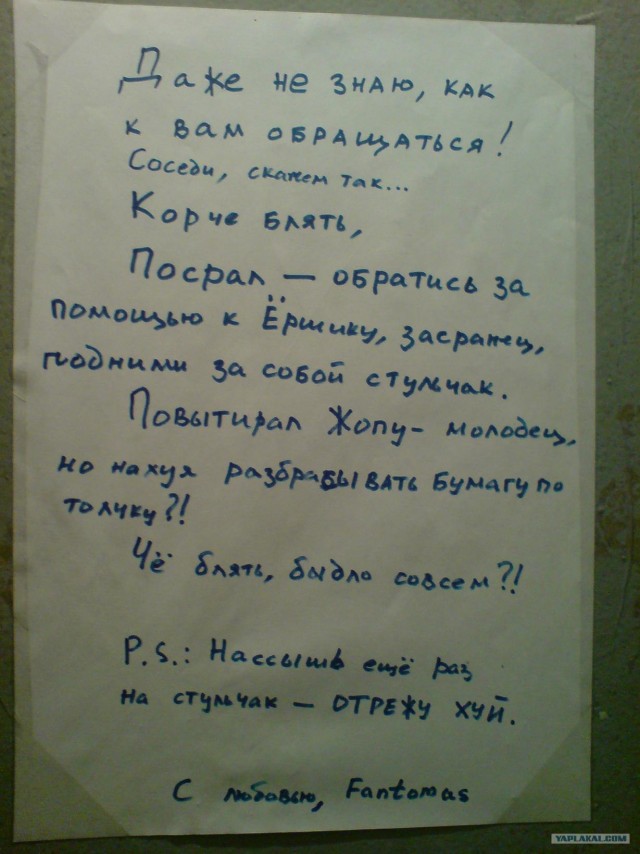 Даже не знаю, как
к вам обращаться!
Соседи, скажем так...
Корче блять,
Посрал — обратись за
помощью к Ёршику, засранец,
подними за собой стульчак.
Повытирал Жопу - молодец,
но нахуя разбрабывать бумагу по
толчку?!
Чё блять, быдло совсем?!
P.S.: Нассышь ещё раз
на стульчак — ОТРЕЖУ ХУЙ.
С любовью, Fantomas
YAPLAKAL.COM